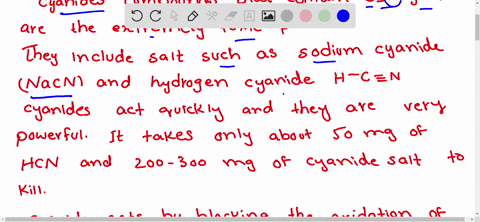 Cyanides
are the extremely
They include salt such as sodium cyanide
(NaCN) and hydrogen cyanide H-C≡N
cyanides act quickly and they are very
powerful. It takes only about 50 mg of
HCN and 200-300 mg of cyanide salt to
kill.
by blocking the oxidation of